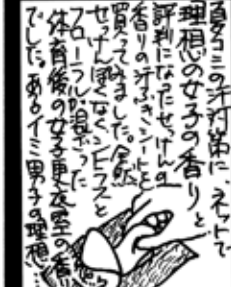 夏コミの汗対策に、ネットで
理想の女子の香りと
評判になったせっけんの
香りの汗ふきシートを
買ってみました。全然
せっけんぽくなくシトラスと
フローラルが混ざった
体育後の女子更衣室の香り
でした。あるイミ男子の理想…